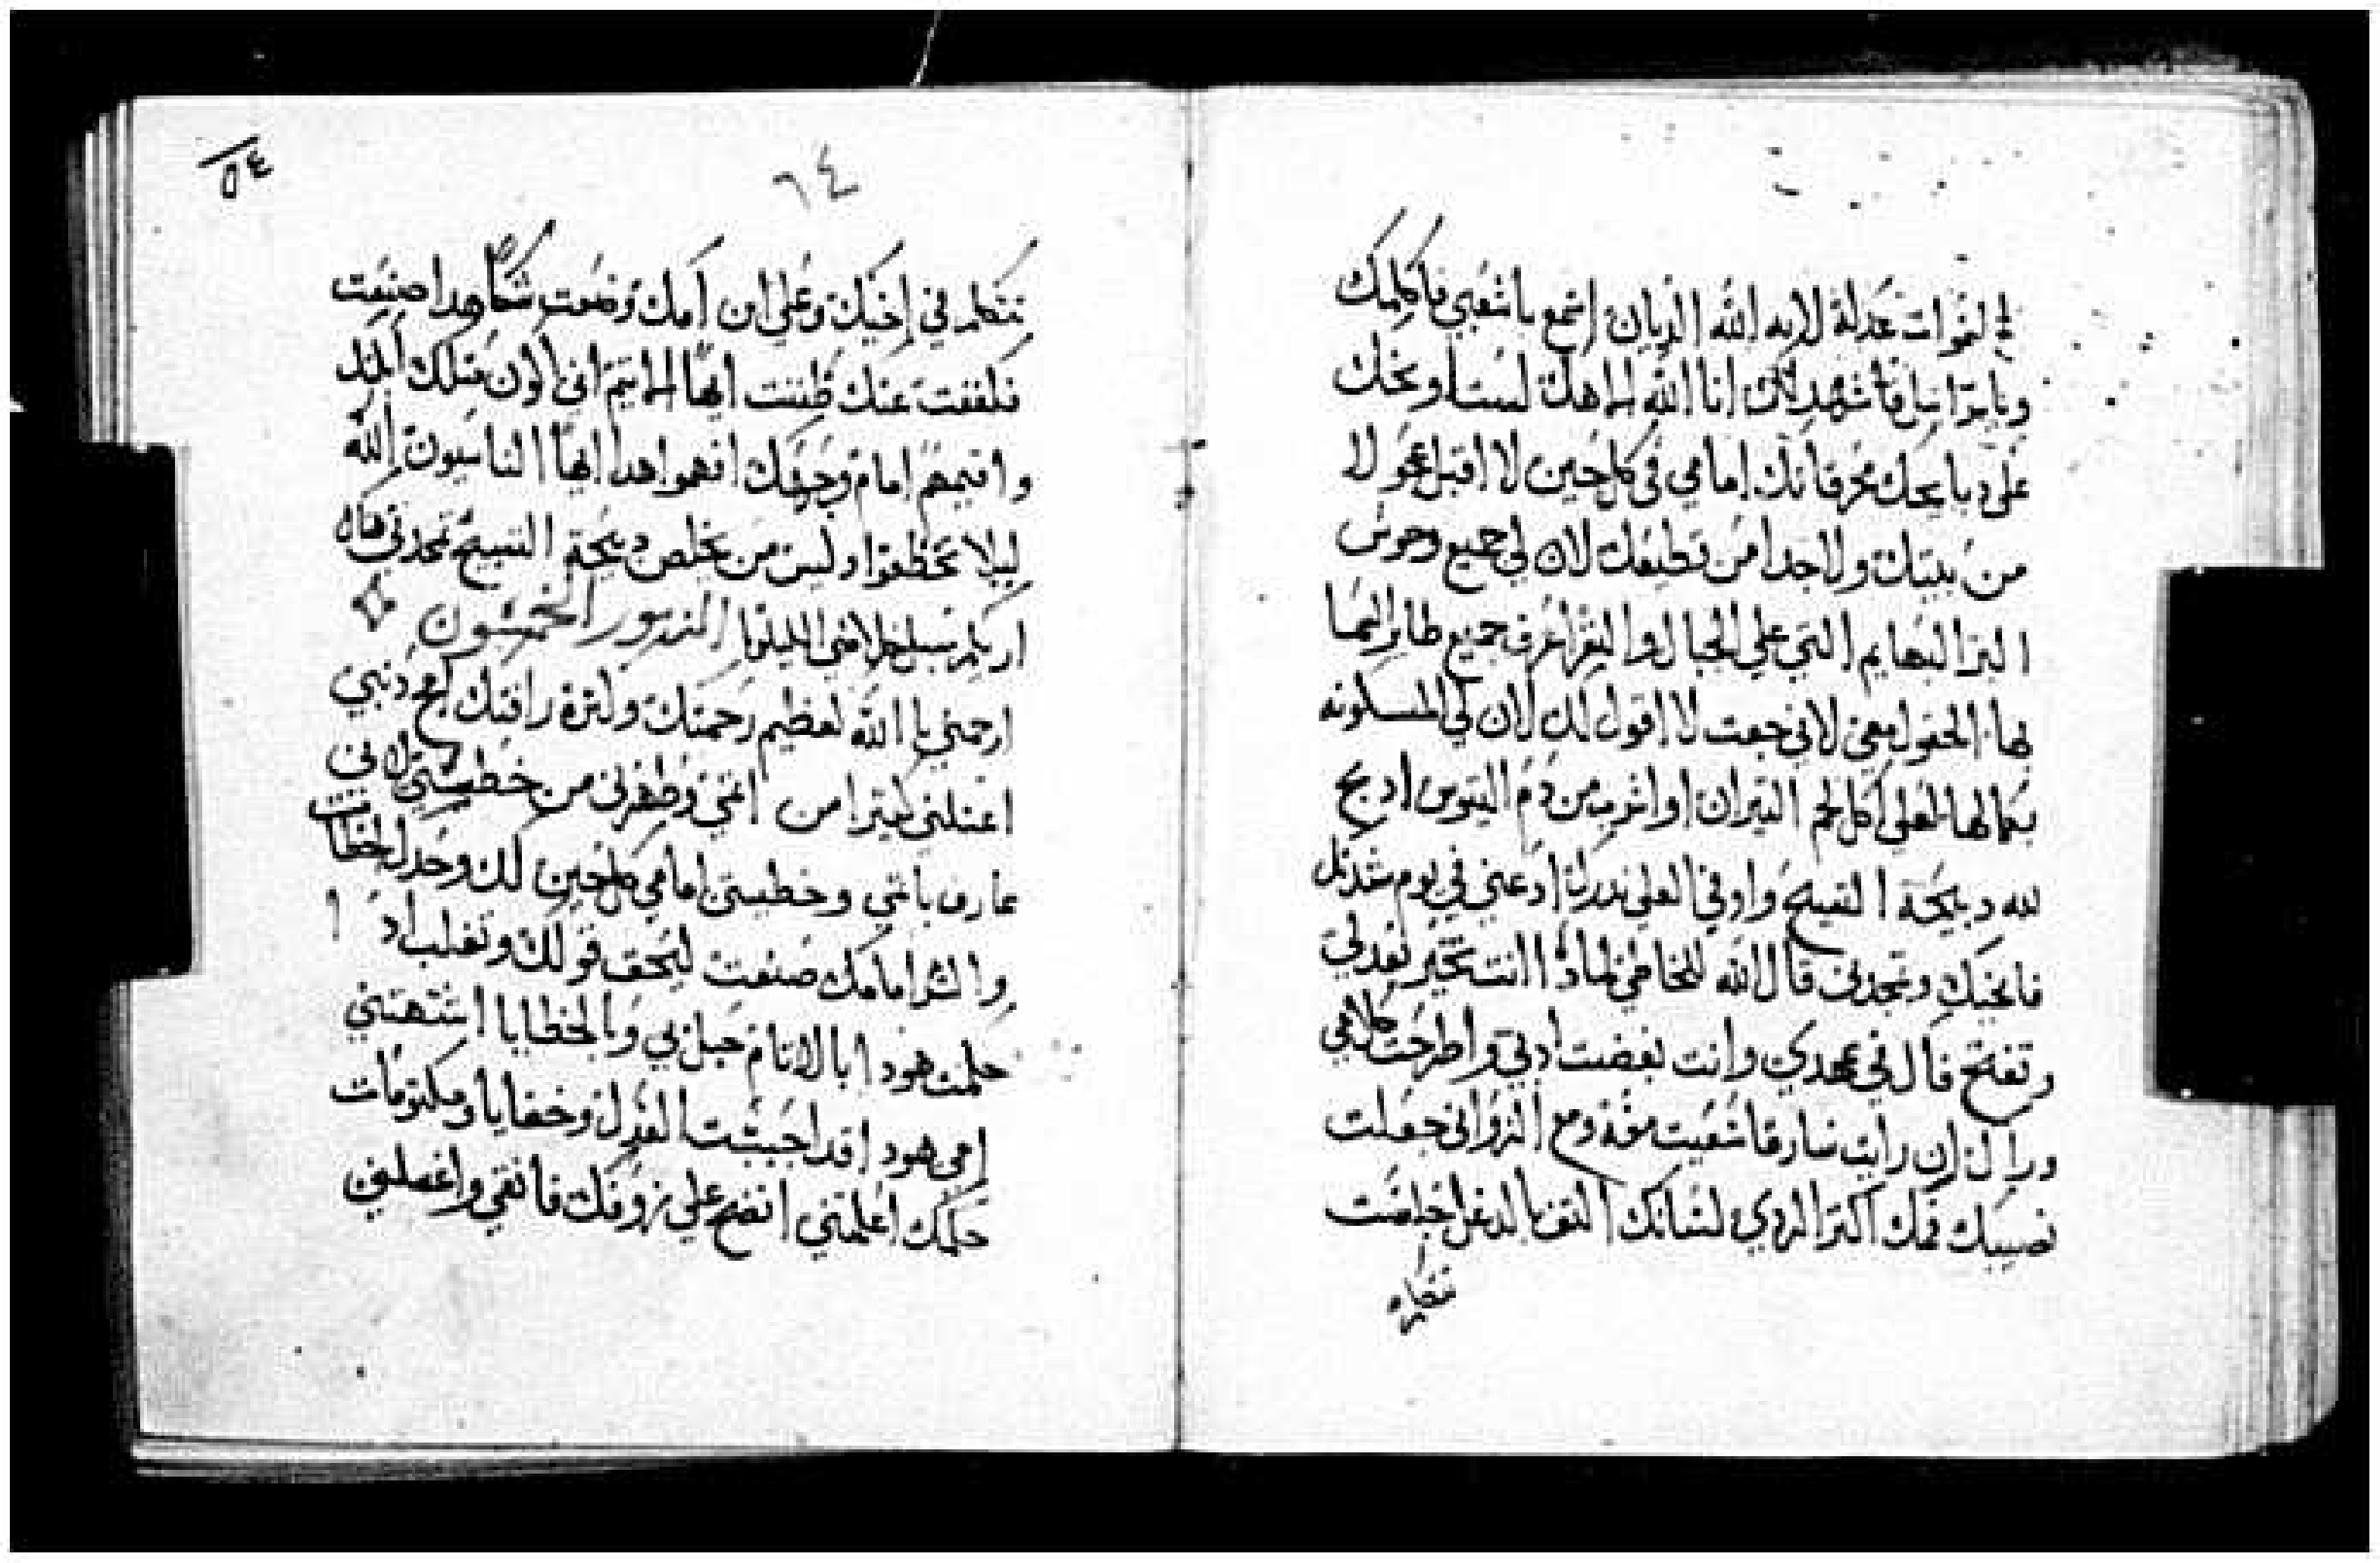 السموات عدله لانه الله الديان اسمع ياشعبي فاكلمك
ويا سرائيل فاشهد لك انا الله الاهك لست اوبخك
علي دبايحك محرقاتك امامي في كل حين لا اقبل عجولا
من بيتك ولا جدا من قطيعك لان لي جميع وحوش
البر البهايم التي علي الجبال والبقر اعرف جميع طاير السما
بها الحقول معي لاني جعت لا اقول لك لان لي المسكونه
بكمالها لعلي اكل لحم التيران او اشرب من دم التيوس ادبح
لله دبيحة التسبيح واوفي العلي ندرك ادعني في يوم شدتك
فانجيك وتمجدني قال الله للخاطي لمادا انت تخبر بعدلي
وتفتح فاك في عهدي وانت بغضت ادبي واطرحت كلامي
وراك ان رايت سارقا شعيت معه ومع الزواني جعلت
نصيبك فمك اكتر الردي لسانك اتقن بالدغل جلست
تتكلم
٥٤
٦٤
تتكلم في اخيك وعلي ابن امك وضعت شكا هدا صنعت
فلففت عنك ظننت ايها الماتيم اني اكون متلك
واقيمهم امام وجهك افهموا هدا ايها الناسيون الله
ليلا تخطفوا وليس من يخلص دبيحة التسبيح تمجدني هناك
خلاصي الليلويا المزمور الخمسون
ارحمني يا الله لعظيم رحمتك ولكترة رافتك امح دنبي
اغسلني كتيرا من اتمي وطهرني من خطيتي لاني
عارف باتمي وخطيتي امامي كل حين لك وحدك اخطات
والشر امامك صنعت ليحق قولك وتغلب ادا
حكمت هودا بالاتام حبل بي وبالخطايا اشتهتني
امي هودا قد احببت العدل وخفايا ومكتومات
حكمك اعلمتني انضح علي بزوفك فانقي واغسلني